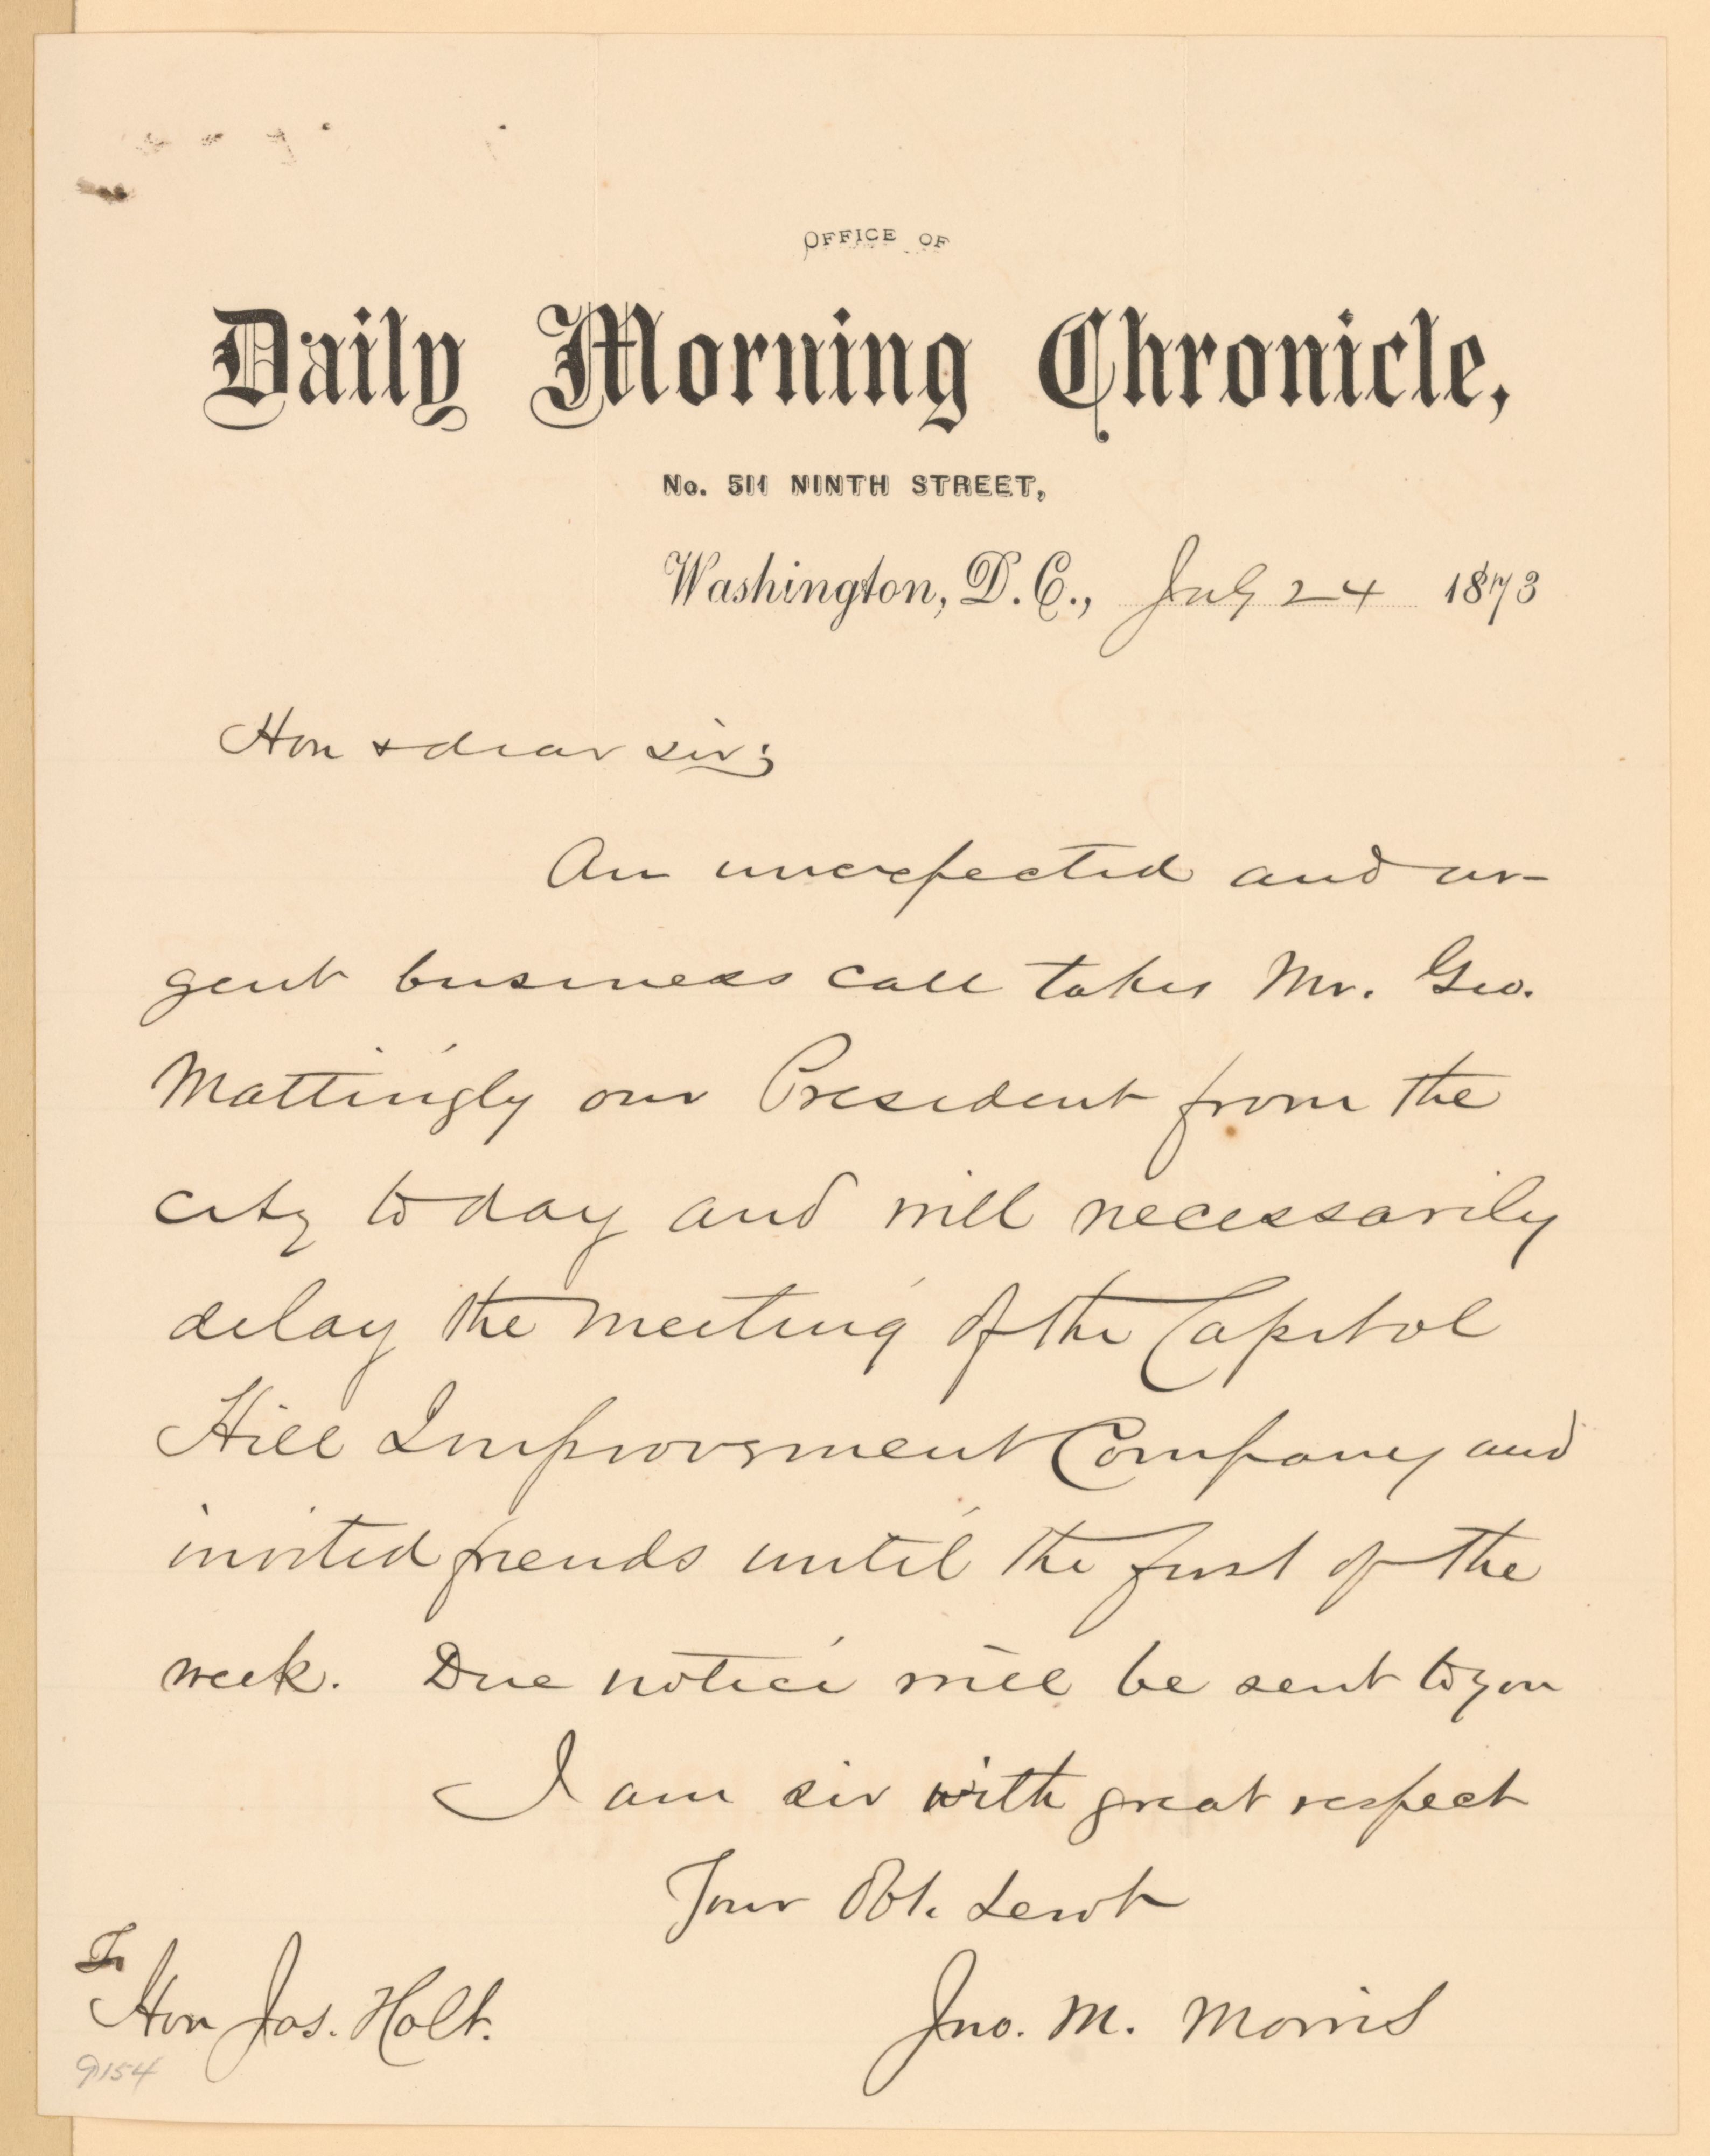 OFFICE OF
Daily Morning Chronicle,
No. 511 NINTH STREET,
Washington, D. C., July 24 1873
Hon & dear sir;
An unexpected and ur-
gent business call takes Mr. Geo.
Mattingly our President from the
city to day and will necessarily
delay the meeting of the Capitol
Hill Improvement Company and
invited friends until the first of the
week. Due notice will be sent to you
I am sir with great respect
Your Obt. Servt
To
Hon Jos. Holt.
Jno. M. Morris
9154